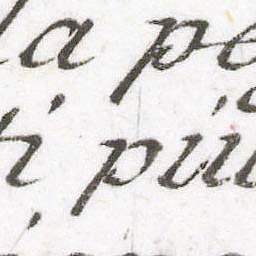 la pe
ti più